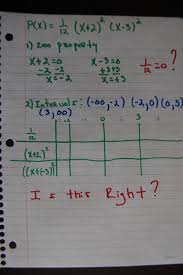 P(x) = 1/12 (x+2)² (x-3)²
1) zero property
x+2=0 x-3=0 1/12=0 ?
-2 -2 +3 +3
x=-2 x=3
2) Intervals: (-∞,-2) (-2,0) (0,3)
(3,∞)
-2 0 3
1/12
(x+2)²
(x+(-3))²
Is this Right?